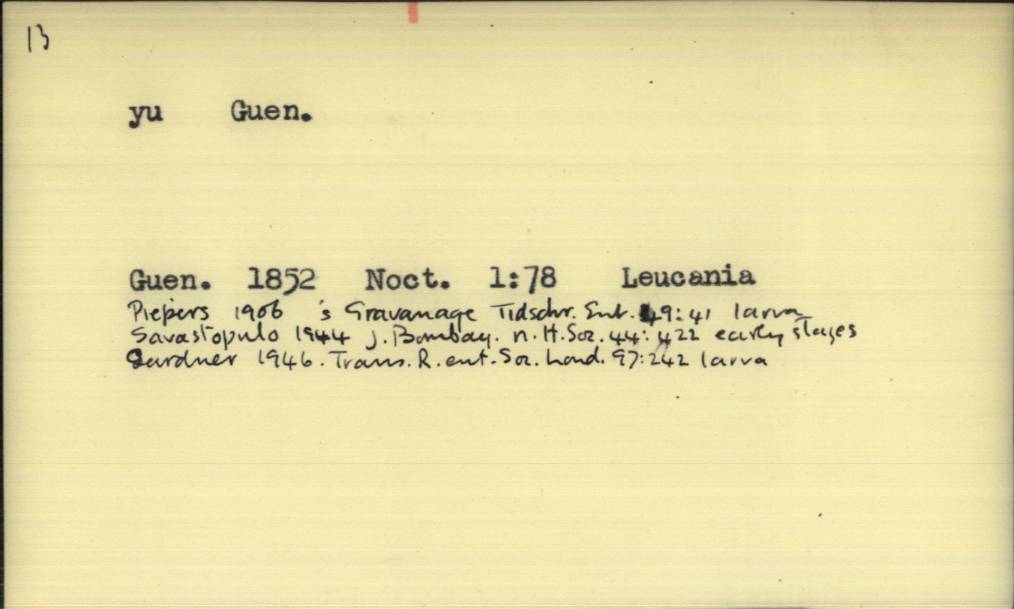 13
yu Guen.
Guen. 1852 Noct. 1:78 Leucania
Piepers 1906 's Gravanage Tidschr. Ent. 49:41 larva
Savastopulo 1944 J. Bombay. n. H. Soc. 44:422 early stages
Gardner 1946. Trans. R. ent. Soc. Lond. 97:242 larva